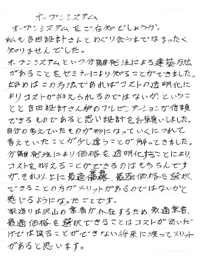 オープンシステム
オープンシステムをご存知でしょうか。
私も吉田設計さんとめぐり会うまではまったく
知りませんでした。
オープンシステムという分離発注による建築方法
があることをセミナーにより知ることができました。
始めはこの方法であればコストの透明化に
よりコストが抑えられるのではないか、というこ
とと吉田設計さん側のプレゼンテーションが信頼
できるものであると思い設計をお願いしました。
自分の考えていたものが形になっていくにつれて
考えていたことが少し違うことが解ってきました。
分離発注により価格を透明化することにより
コストを抑えることができるのはもちろんです
が、それ以上に最適業者、最適価格を選択
できることの方がメリットがあるのではないかと
感じるようになったことです。
家造りは沢山の業者が係わるため、最適業者、
最適価格を選択できることはコストが安いだ
けでは図ることができない将来に渡ってメリット
があると思います。